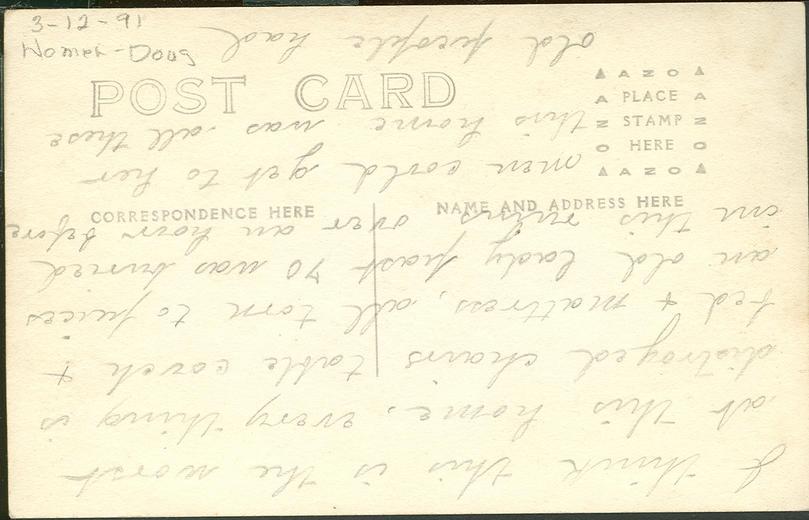 3-12-91
Women-Doug
POST CARD
AZO
PLACE
STAMP
HERE
AZO
CORRESPONDENCE HERE
NAME AND ADDRESS HERE
I think this is the worst
at this home. every thing is
distroyed chairs table couch +
bed + mattress, all torn to pieces
an old lady past 70 was buried
in this ruins over an hour before
men could get to her
this home was all these
old people had